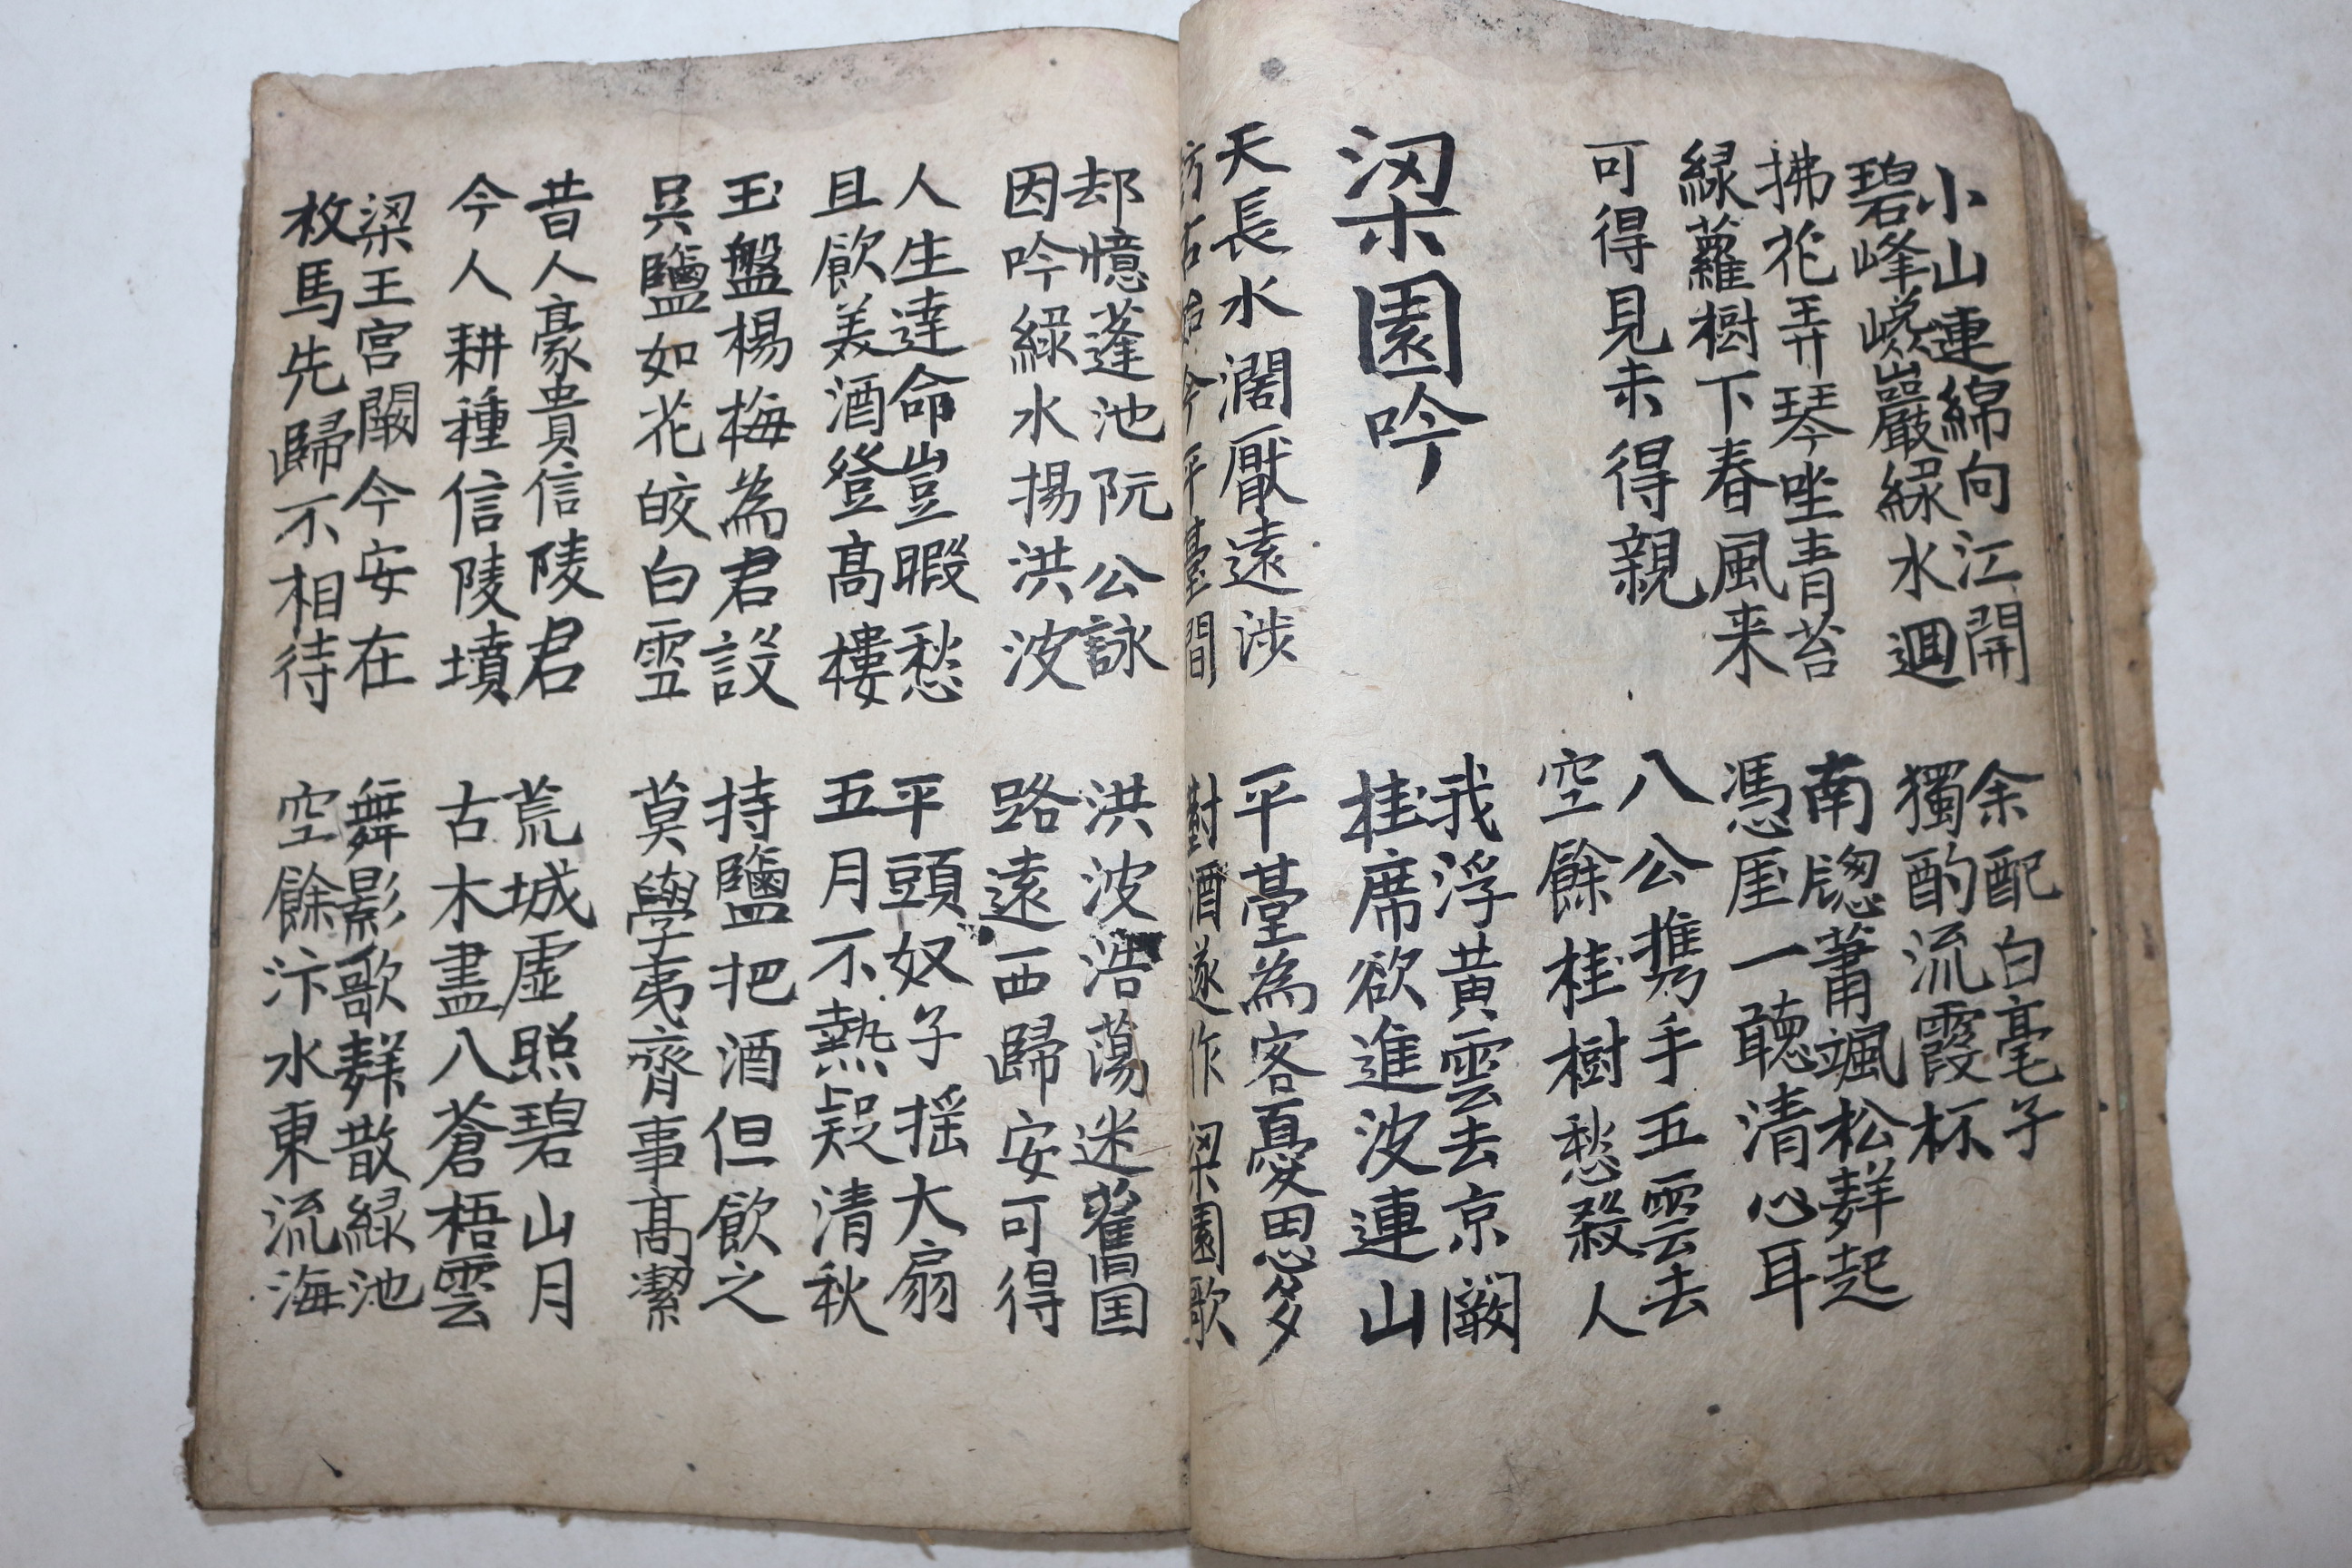 小山連綿向江開
碧峰巉巖綠水迴
余配白毫子
獨酌流霞杯
拂花弄琴坐青苔
綠蘿樹下春風来
南窓蕭颯松聲起
馮厓一聽清心耳
可得見未得親
八公携手五雲去
空餘桂樹愁殺人
梁園吟
我浮黄雲去京闕
桂席欲進波連山
天長水濶厭遠涉
訪古始今平臺間
平臺為客憂思多
對酒遂作梁園歌
却憶蓬池阮公詠
因吟綠水揚洪波
洪波浩蕩迷舊国
路遠西歸安可得
人生達命豈暇愁
且飮美酒登髙樓
平頭奴子揺大扇
五月不熱疑清秋
玉盤楊梅為君設
吳鹽如花皎白雪
持鹽把酒但飮之
莫學夷齊事髙潔
昔人豪貴信陵君
今人耕種信陵墳
荒城虛照碧山月
古木盡八蒼梧雲
梁王宮闕今安在
枚馬先歸不相待
舞影歌聲散緑池
空餘汴水東流海